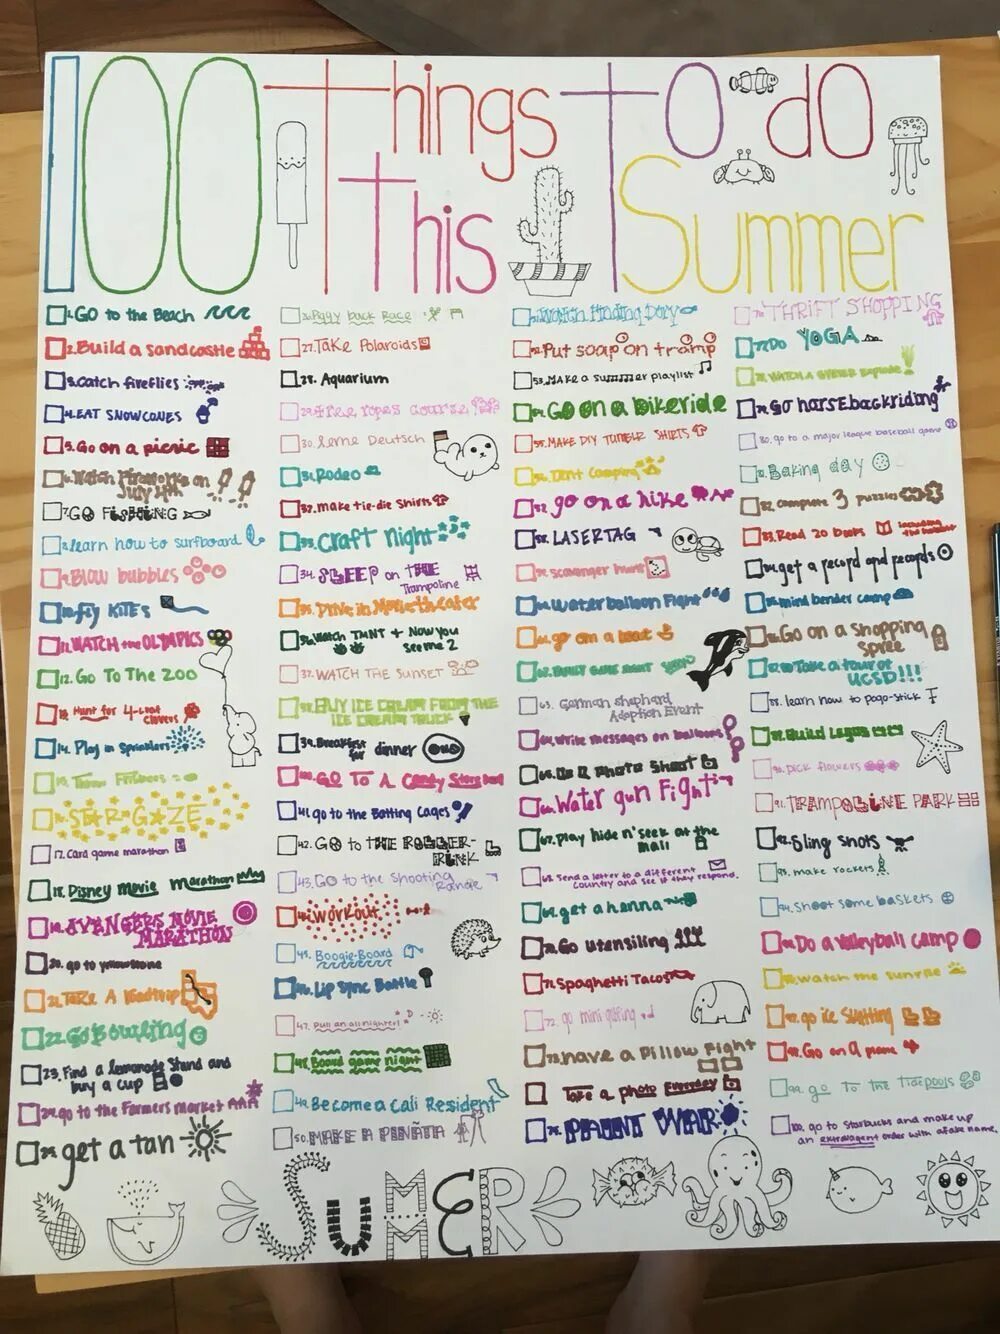 100 Things to do
This Summer
1. GO to the Beach
2. Build a sandcastle
3. catch fireflies
4. EAT SNOWCONES
5. Go on a picnic
6. Watch Fireworks on
July 4th
7. GO FISHING
8. learn how to surfboard
9. Blow bubbles
10. fly KITES
11. WATCH the OLYMPICS
12. Go To The zoo
13. Hunt for 4-Leaf
clovers
14. Play in Sprinklers
15. Throw Frisbees
16. STAR-GAZE
17. Card game marathon
18. Disney movie marathon
19. AVENGERS MOVIE
MARATHON
20. go to yellowstone
21. TAKE A Roadtrip
22. Go Bowling
23. Find a Lemonade Stand and
buy a cup
24. go to the Farmers market
25. get a tan
26. Piggy back Race
27. Take Polaroids
28. Aquarium
29. Free ropes course
30. Lerne Deutsch
31. Rodeo
32. make tie-die Shirts
33. Craft night
34. SLEEP on THE
Trampoline
35. Drive in Movie theater
36. Watch TMNT + Now you
see me 2
37. WATCH THE SUNSET
38. BUY ICE CREAM FROM THE
ICE CREAM TRUCK
39. Breakfast
for dinner
40. GO TO A Candy Store
41. go to the Batting Cages
42. GO to THE ROLLER-
RINK
43. Go to the shooting
Range
44. Workout
45. Boogie-Board
46. Lip Sync Battle
47. Pull an all nighter!
48. Board game night
49. Become a Cali Resident
50. MAKE A PIÑATA
51. Watch Finding Dory
52. Put soap on tramp
53. MAKE a summer playlist
54. Go on a bike ride
55. MAKE DIY TUMBLR SHIRTS
56. Tent Camping
57. go on a hike
58. LASERTAG
59. scavanger hunt
60. Water balloon Fight
61. go on a boat
62. FAMILY GAME NIGHT
63. German shephard
Adoption Event
64. Write messages on balloons
65. Do a Photo Shoot
66. Water gun Fight
67. Play hide n' seek at the
mall
68. Send a letter to a different
country and see if they respond.
69. get a henna
70. Go utensiling
71. Spaghetti Tacos
72. go mini golfing
73. have a Pillow Fight
Take a photo Everyday
75. PAINT WAR
76. THRIFT SHOPPING
77. Do YOGA
78. WATCH A GEYSER EXPLODE
79. Go horsebackriding
80. go to a major league baseball game
81. Baking day
82. Complete 3 puzzles
83. Read 20 books
84. get a record and records
85. mind bender camp
86. Go on a shopping
spree
87. Take a tour of
UCSD!!!
88. learn how to pogo-stick
89. Build Legos
90. PICK flowers
91. TRAMPOLINE PARK
92. Sling shots
93. make rockets
94. shoot some baskets
95. Do a Volleyball camp
96. watch the sunrise
97. go ice skating
98. Go on a plane
99. go to the tidepools
100. go to Starbucks and make up
an extravagent order with a fake name.
SUMMER